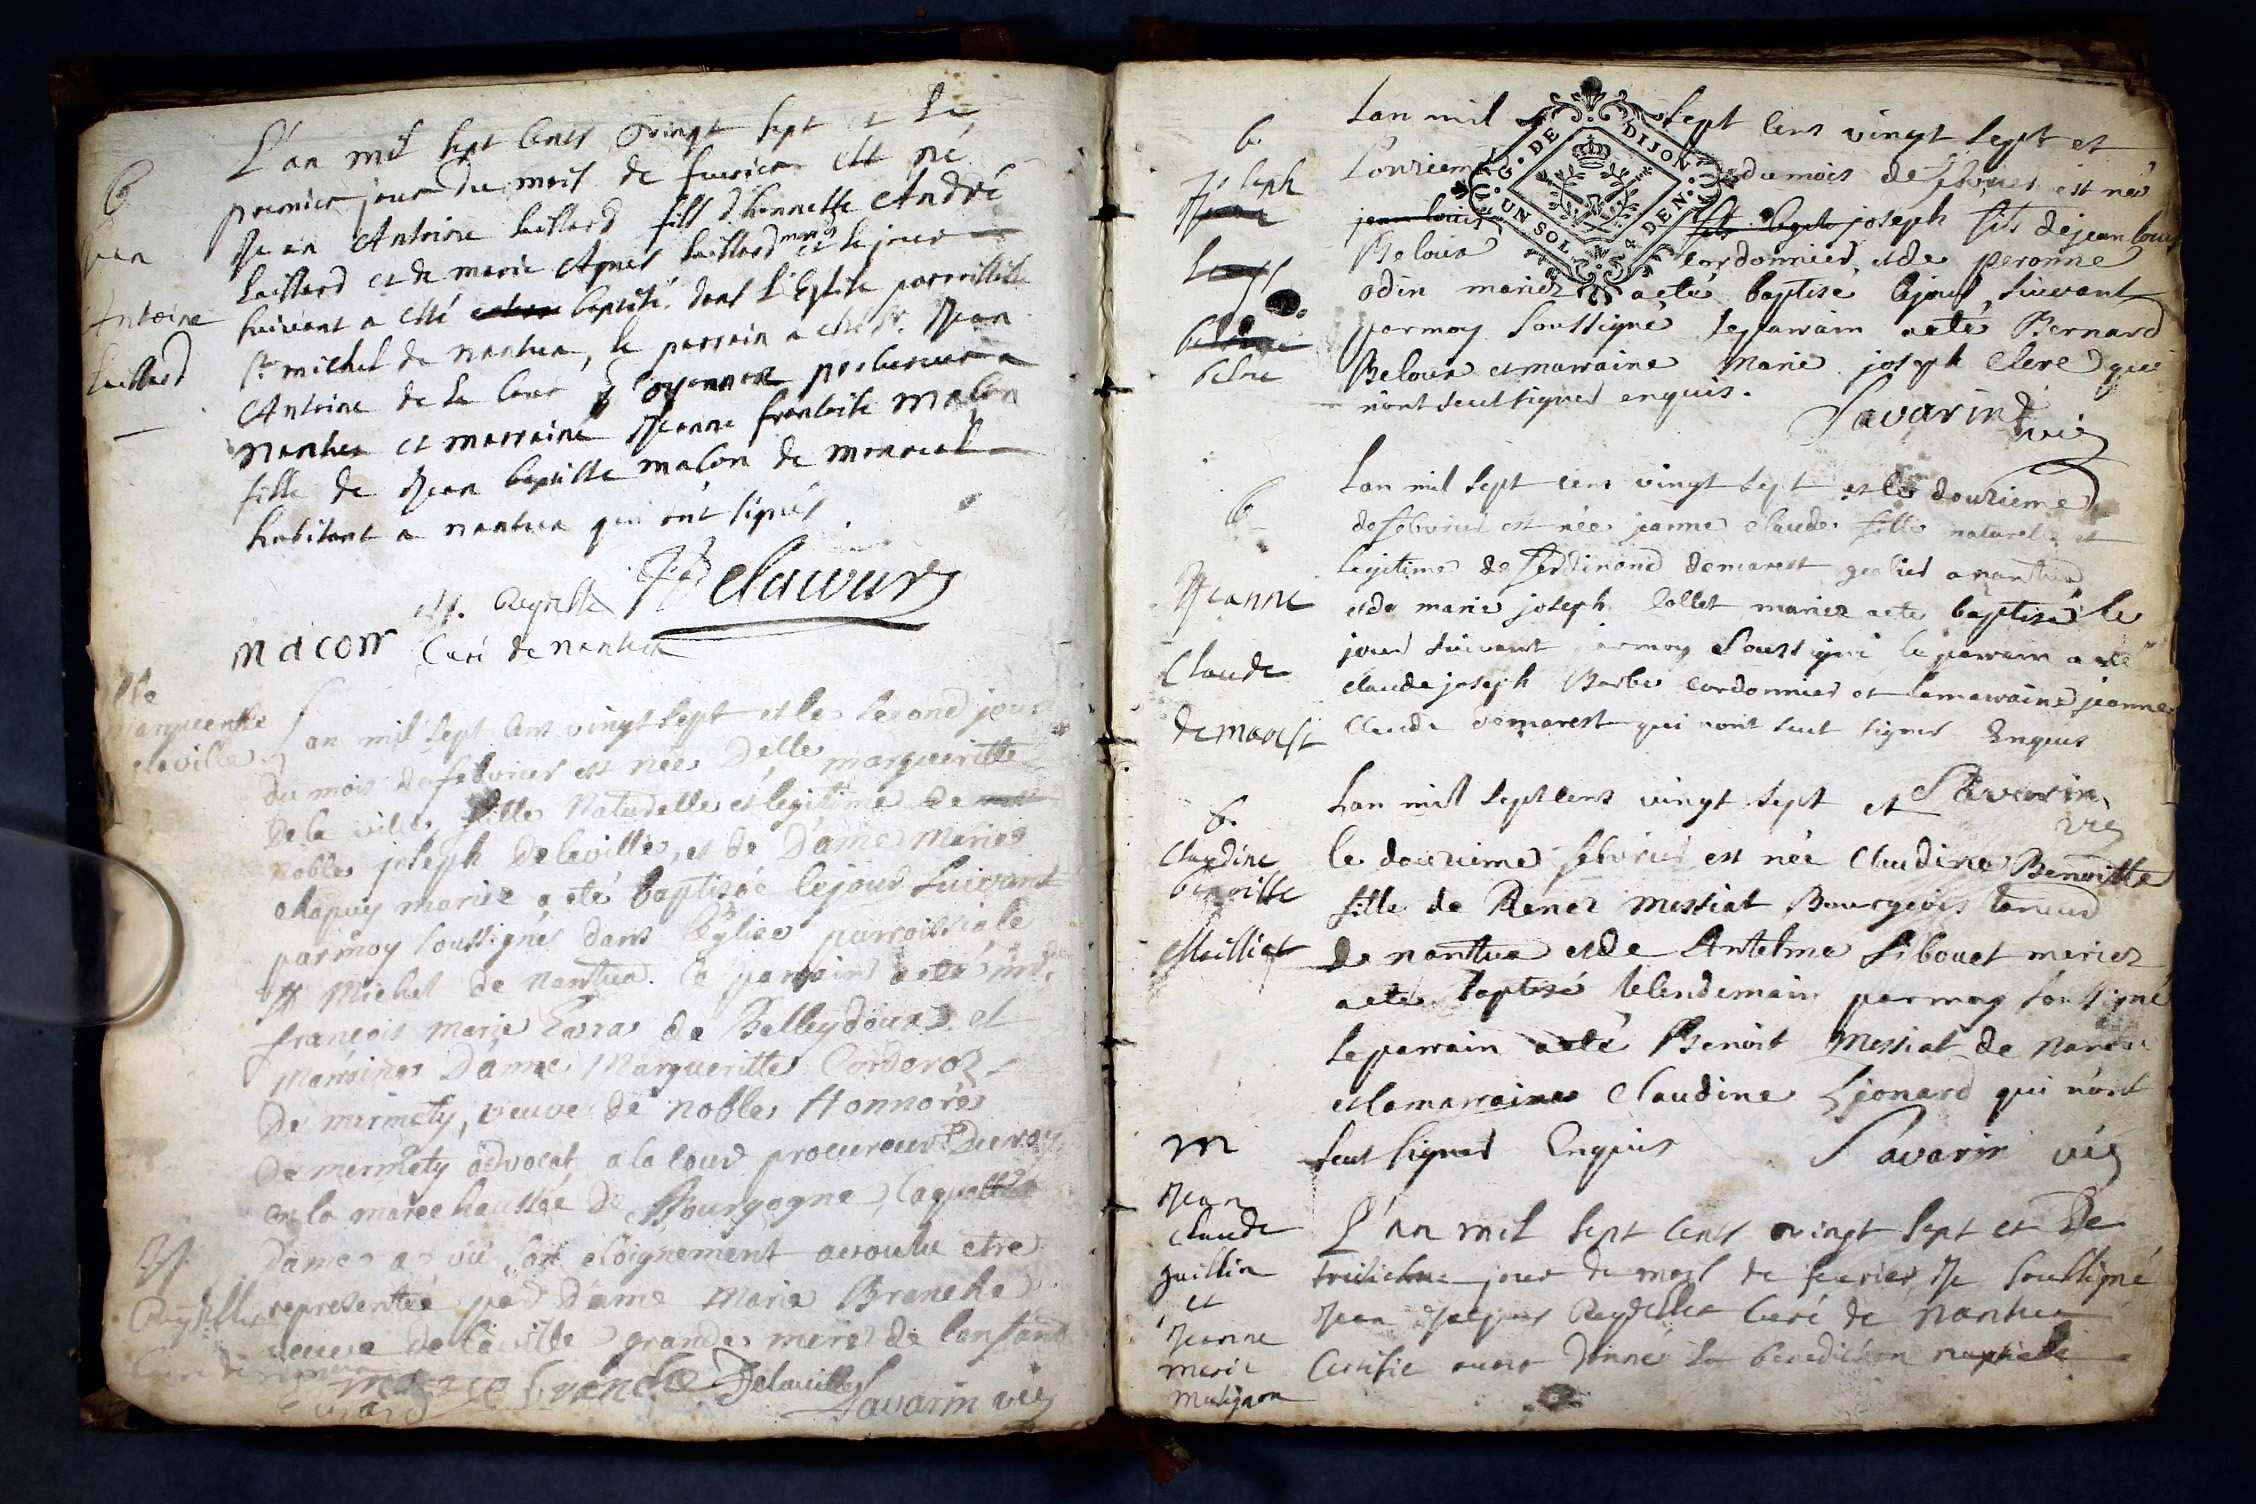 B
Jean
Antoine
Laillard
L'an mil sept cents vingt sept et le
premier jour du mois de feurier est né
Jean Antoine Laillard fils d'honnette André
Laillard et de marie Agnes Laillard mariés et le jour
suivant a esté baptisé dans l'Eglise parroissiale
St michel de nantua, le parrain a esté Sr. Jean
Antoine de la Cour d'oyonnax procureur a
nantua et marraine Jeanne francoise macon
fille de Jean baptiste macon de
habitant a nantua qui ont signés.
JJ. Reydellet
Delacour
macon Curé de nantua
Dlle
Margueritte
delaville
Lan mil sept cens vingt sept et le second jour
du mois de febvrier est née Delle margueritte
de la ville fille naturelle et legitime de
noble joseph delaville, et de Dame Marie
chapuy mariez a eté baptisée le jour suivant
par moy soussigné dans l'Eglise parroissiale
St Michel de Nantua. le parrain a eté mr.
françois marie de Belleydoux et
marraine Dame Margueritte Corderoz
De mermety, veuve de noble Honnoré
De mermety advocat a la cour procureur Du roy
en la marechaussée de Bourgogne, laquelle
dame a vü son eloignement a voulu etre
representée par Dame Marie Branche
veuve delaville grande mere de lanfant
JJ.
Reydellet
Curé de nantua
marie branche Delaville
Savarin vic
b.
Joseph
Jean
Louys
beloux
Lan mil sept cens vingt sept et
Lonzieme du mois de febvrier est né
jean louis joseph fils de jean louis
Beloux cordonnier, et de peronne
odin mariez a eté baptisé le jour suivant
par moy soussigné le parrain a eté Bernard
Beloux et marraine Marie joseph Clerc qui
n'ont sceut signer enquis.
Savarin vic
G. DE DIJON. UN SOL 4 DEN.
b
Jeanne
Claude
demarest
Lan mil sept cens vingt sept et le douzieme
de febvrier est née jeanne claude fille naturelle et
legitime de ferdinand demarest geolier a nantua
et de marie joseph Collet mariez a eté baptisé le
jour suivant par moy soussigné le parrain a eté
claude joseph Barbe cordonnier et la marraine jeanne
Claude demarest qui nont sceut signer Enquis
Savarin
vic
b.
Claudine
benoitte
Messiat
Lan mil sept cens vingt sept et
le douzieme febvrier est née Claudine Benoitte
fille de Renez Messiat Bourgeois taneur
de nantua et de Antelme Sibouet mariez
a eté baptisé le lendemain par moy soussigné
le parrain a eté Benoit Messiat de Nantua
et la marraine Claudine Lionard qui n'ont
sceut signer Enquis Savarin vic
m
Jean
claude
guillin
et
Jeanne
marie
matignon
L'an mil sept cents vingt sept et le
treisieme jour du mois de feurier, Je soussigné
Jean Jacques Reydellet Curé de nantua
Certifie avoir donné la benediction nuptiale a